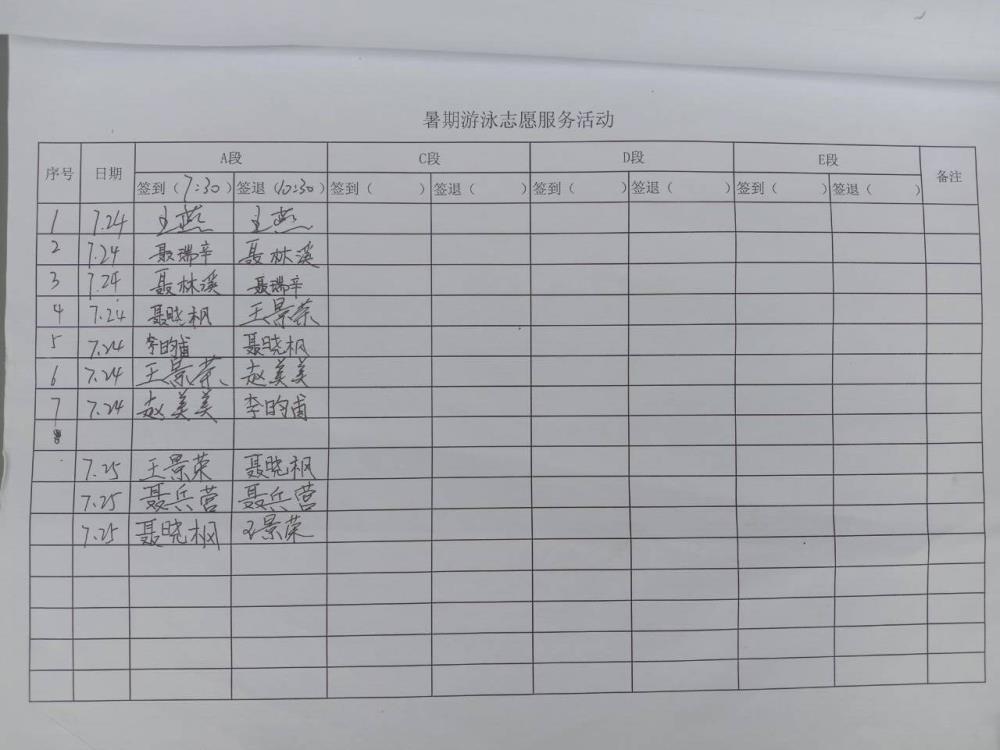 暑期游泳志愿服务活动
序号 日期 A段 C段 D段 E段 备注
签到（7:30） 签退（10:30） 签到（ ） 签退（ ） 签到（ ） 签退（ ） 签到（ ） 签退（ ）
1 7.24 王燕 王燕
2 7.24 聂瑞辛 聂林溪
3 7.24 聂林溪 聂瑞辛
4 7.24 聂晓枫 王景荣
5 7.24 李昀甫 聂晓枫
6 7.24 王景荣 赵美美
7 7.24 赵美美 李昀甫
8
7.25 王景荣 聂晓枫
7.25 聂兵营 聂兵营
7.25 聂晓枫 王景荣